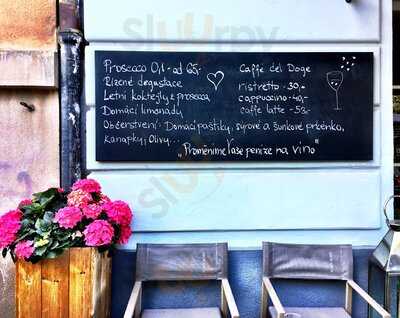 Prosecco 0,1 - od 65,-
Různé degustace
Letní koktejly z prosecca
Domácí limonády
Občerstvení: Domácí paštiky, sýrové a šunkové prkénko,
kanapky, olivy...
Caffe del Doge
ristretto - 30,-
cappuccino - 40,-
caffe latte - 53,-
"Proměníme Vaše peníze na víno"